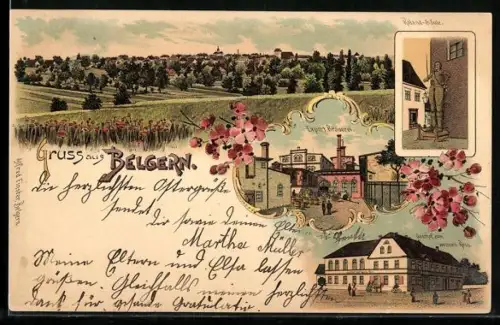 Roland-Säule
Gruss aus BELGERN.
Export Brauerei
Alfred Fincker, Belgern.
Die herzlichsten Ostergrüße
sendet
Dir sowie deinen
Martha Müller
Meine Eltern und Elsa lassen
grüßen. Gleichfalls meinen herzlichsten
Dank für gesande Gratulation